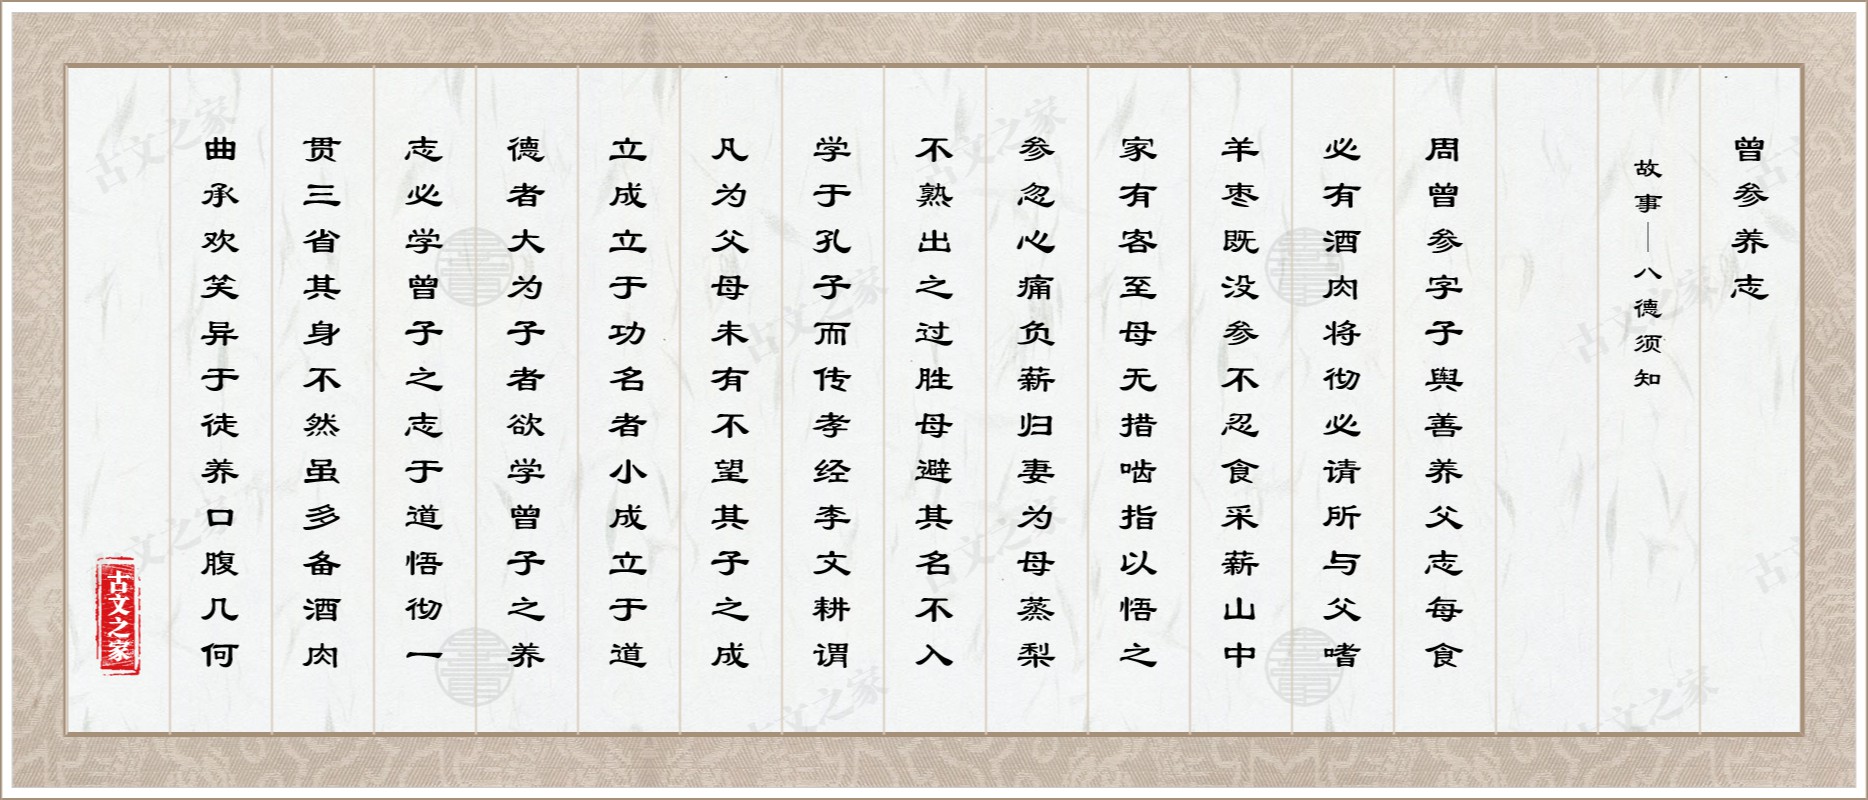 曾参养志
故事—八德须知
周曾参字子舆善养父志每食
必有酒肉将彻必请所与父嗜
羊枣既没参不忍食采薪山中
家有客至母无措啮指以悟之
参忽心痛负薪归妻为母蒸梨
不熟出之过胜母避其名不入
学于孔子而传孝经李文耕谓
凡为父母未有不望其子之成
立成立于功名者小成立于道
德者大为子者欲学曾子之养
志必学曾子之志于道悟彻一
贯三省其身不然虽多备酒肉
曲承欢笑异于徒养口腹几何
古文之家